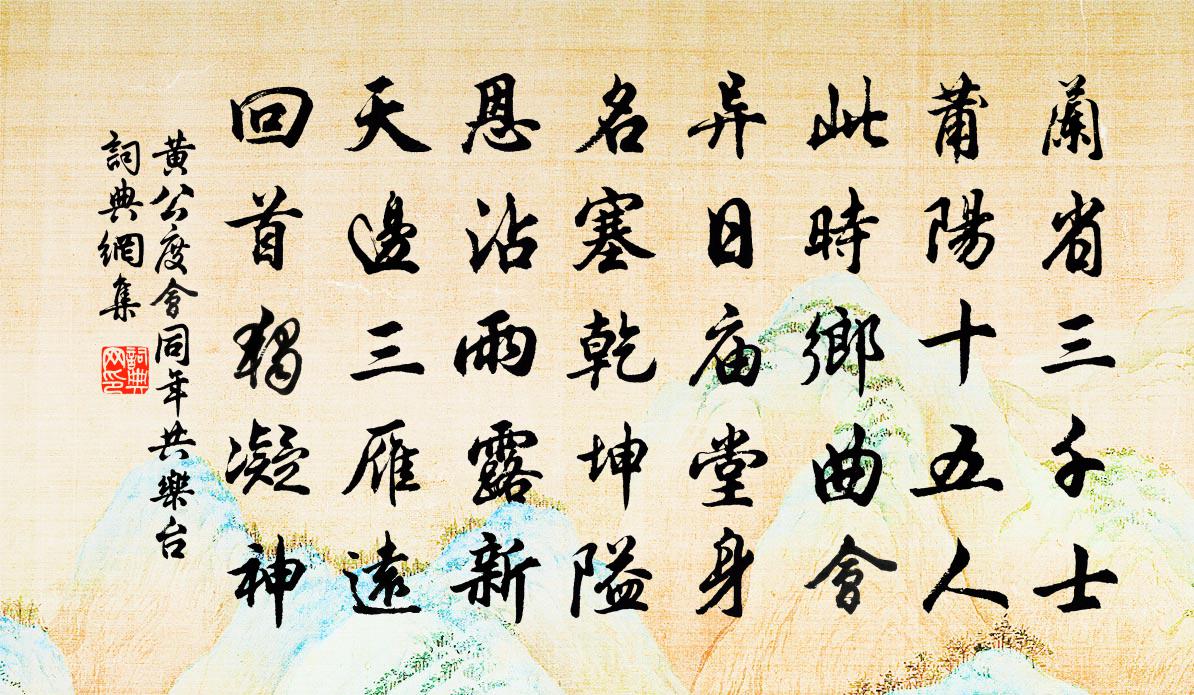 蘭省三千士
莆陽十五人
此時鄉曲會
异日庙堂身
名塞乾坤隘
恩沾雨露新
天邊三雁遠
回首独凝神
黄公度會同年共樂台
詞典網集
詞典网印